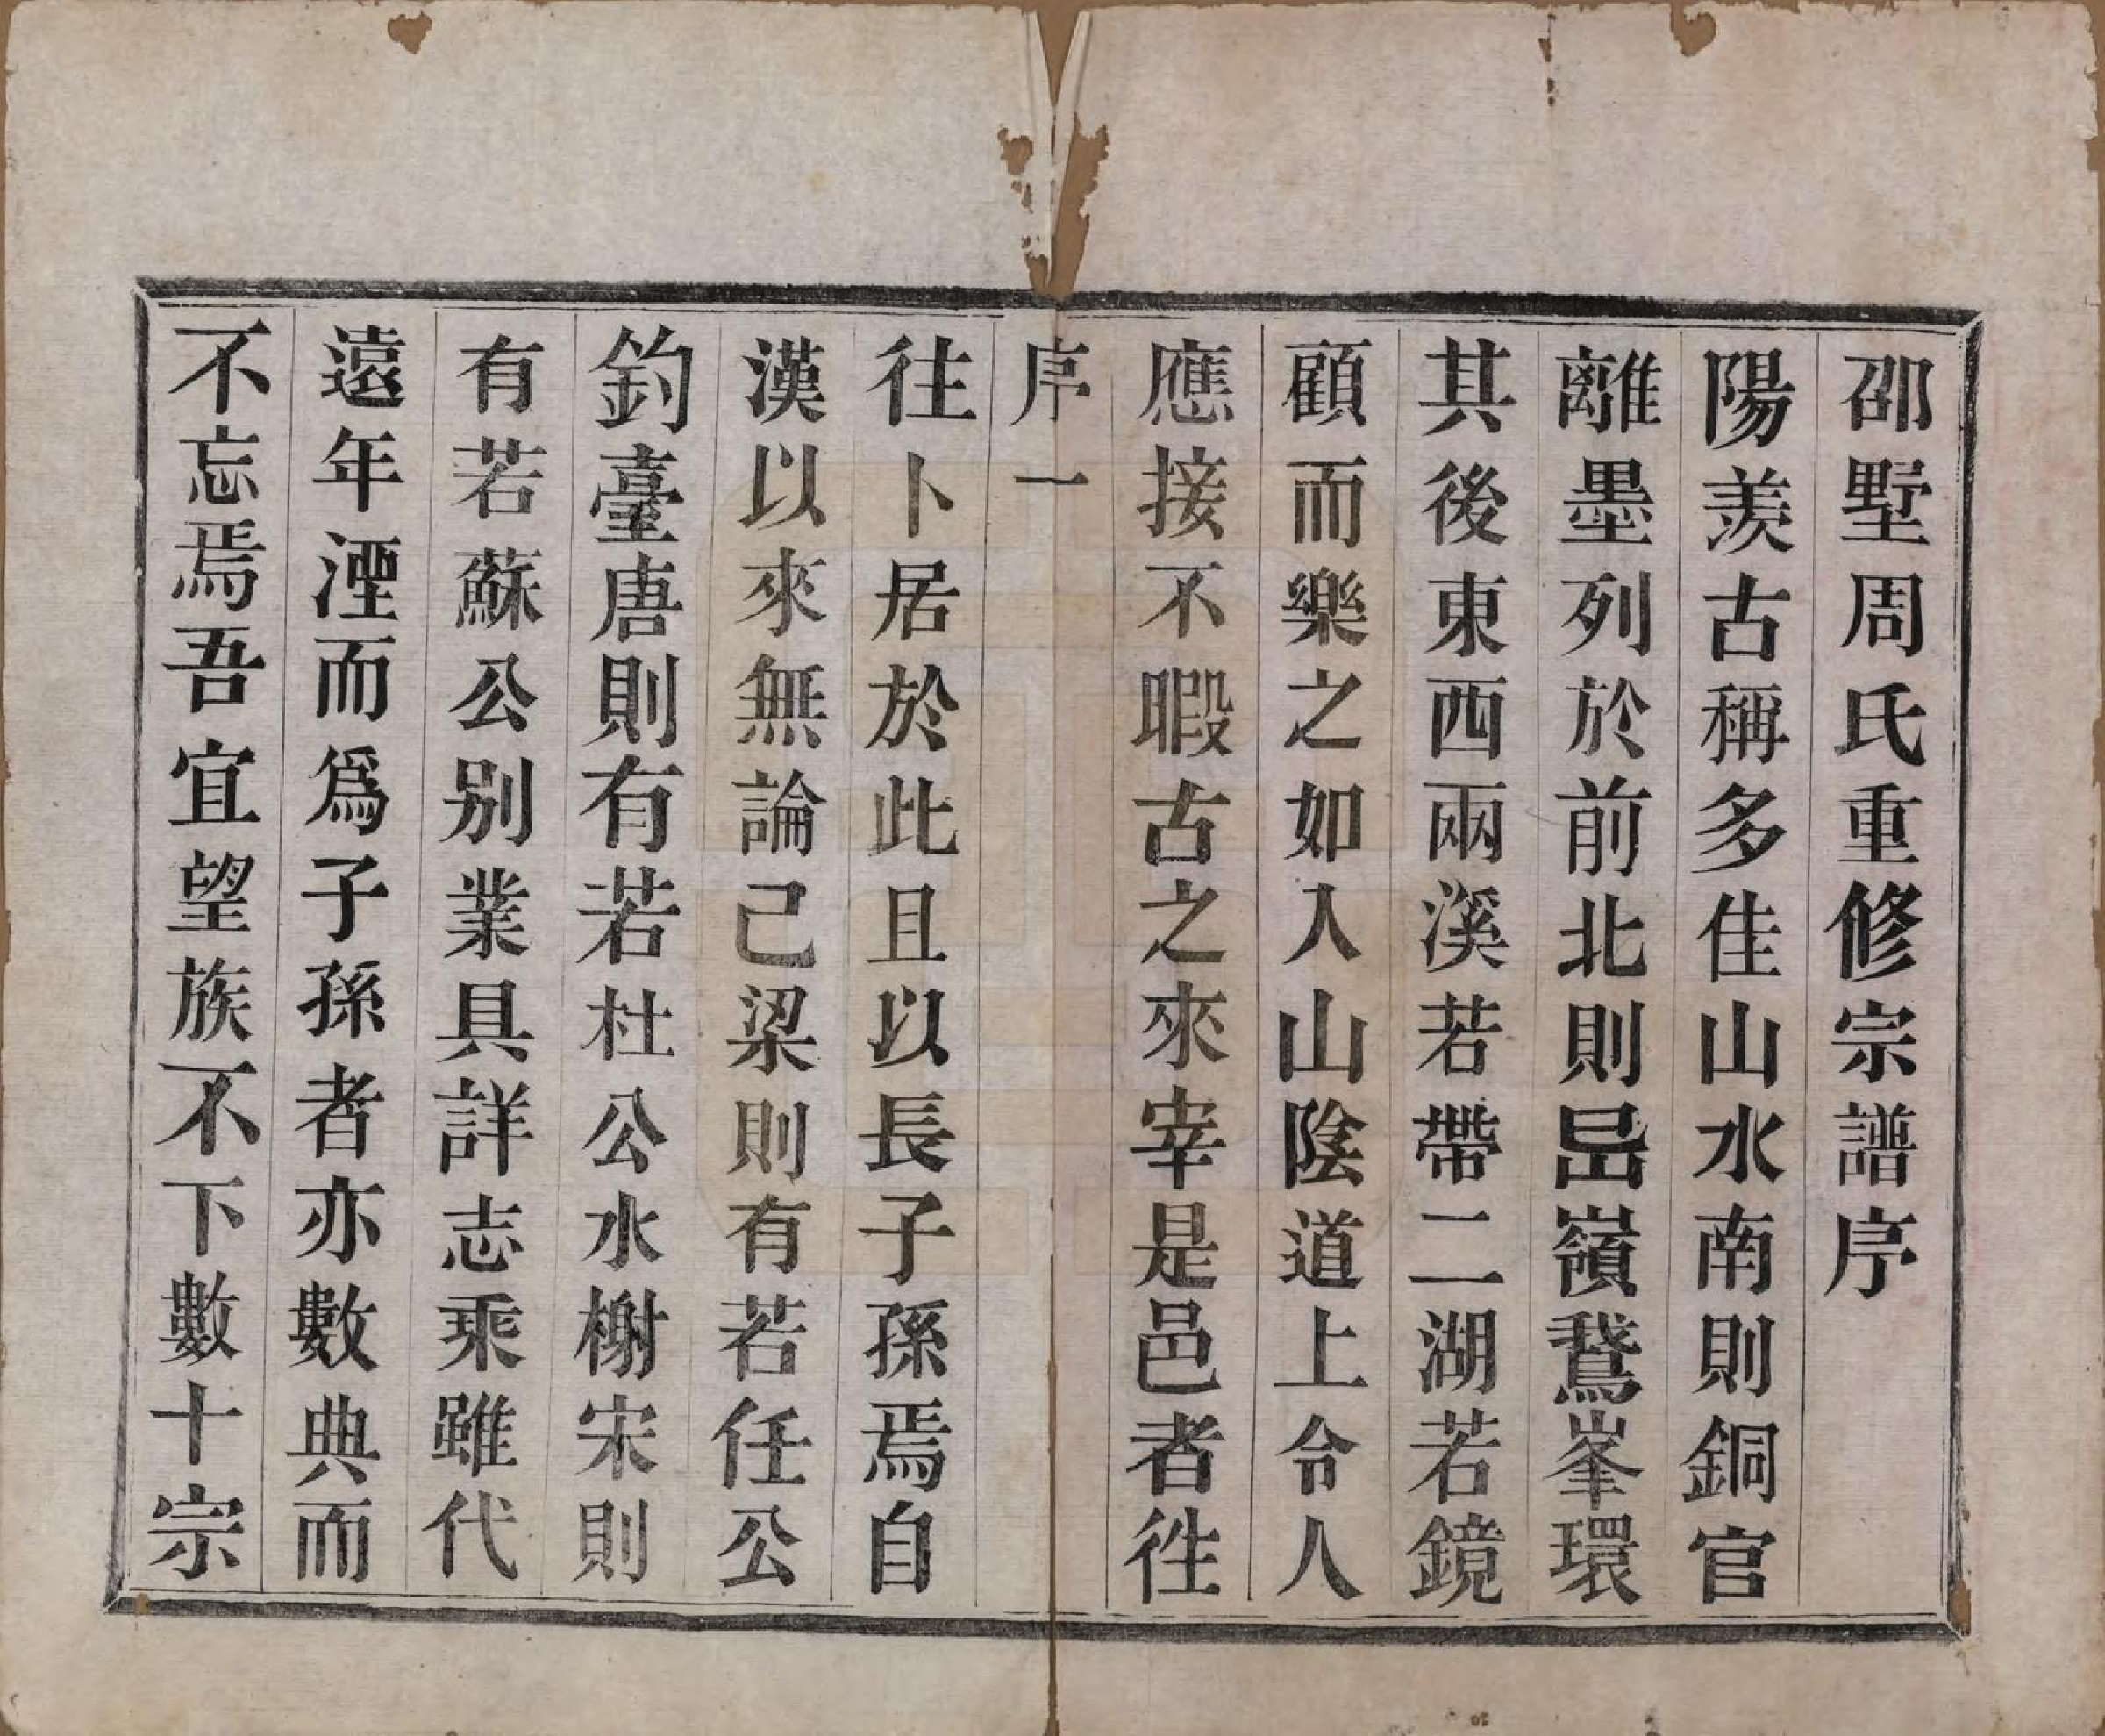 邵墅周氏重修宗譜序
陽羨古稱多佳山水南則銅官
離墨列於前北則嵒嶺鵞峯環
其後東西兩溪若帶二湖若鏡
顧而樂之如入山陰道上令人
應接不暇古之來宰是邑者徃
序一
往卜居於此且以長子孫焉自
漢以來無論己梁則有若任公
釣臺唐則有若杜公水榭宋則
有若蘇公别業具詳志乘雖代
遠年湮而爲子孫者亦數典而
不忘焉吾宜望族不下數十宗